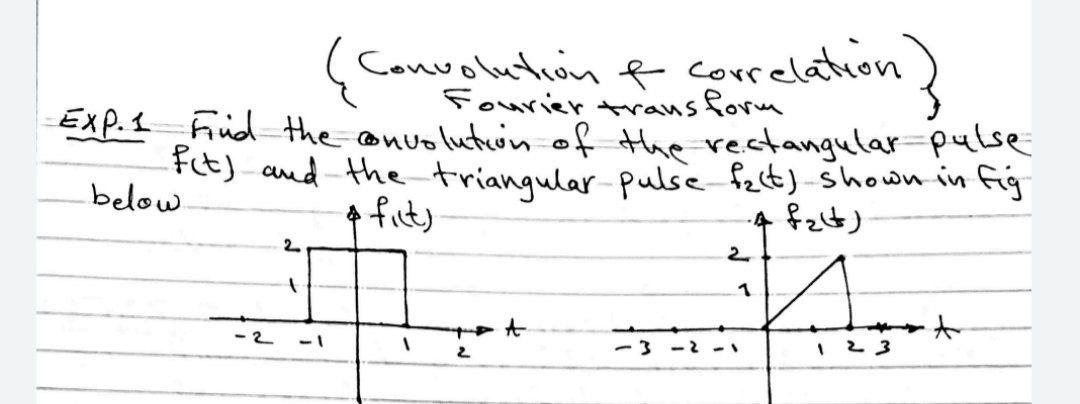 { Convolution & correlation }
Fourier transform
Exp.1 Find the convolution of the rectangular pulse
f(t) and the triangular pulse f₂(t) shown in fig
below
f₁(t) f₂(t)
2 2
1 1
t t
-2 -1 1 2 -3 -2 -1 1 2 3